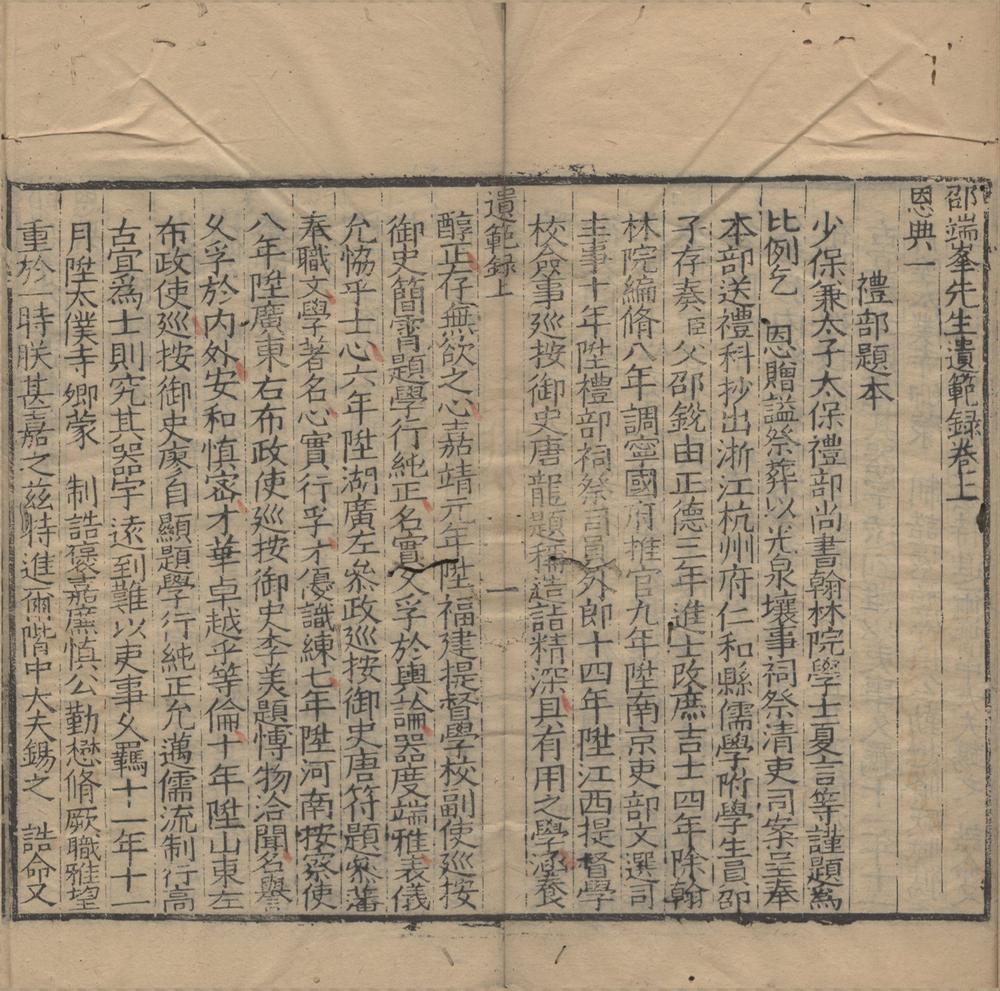 邵端峯先生遺範録卷上
恩典一
禮部題本
少保兼太子太保禮部尚書翰林院學士夏言等謹題爲
比例乞　恩贈謚祭葬以光泉壤事祠祭清吏司案呈奉
本部送禮科抄出浙江杭州府仁和縣儒學附學生員邵
子存奏臣父邵銳由正德三年進士改庶吉士四年除翰
林院編脩八年調寧國府推官九年陞南京吏部文選司
主事十年陞禮部祠祭司員外郎十四年陞江西提督學
校僉事巡按御史唐龍題稱造詣精深具有用之學涵養
遺範録上
一
醇正存無欲之心嘉靖元年陞福建提督學校副使巡按
御史簡霄題學行純正名實久孚於輿論器度端雅表儀
允恊乎士心六年陞湖廣左叅政巡按御史唐符題叅藩
奉職文學著名心實行孚才優識練七年陞河南按察使
八年陞廣東右布政使巡按御史李美題愽物洽聞名譽
久孚於内外安和慎宻才華卓越乎等倫十年陞山東左
布政使巡按御史廖自顯題學行純正允邁儒流制行高
古宜爲士則究其器宇遠到難以吏事久羈十一年十一
月陞太僕寺卿蒙　制誥褒嘉廉慎公勤懋脩厥職雅望
重於一時朕甚嘉之茲特進爾階中大夫錫之　誥命又